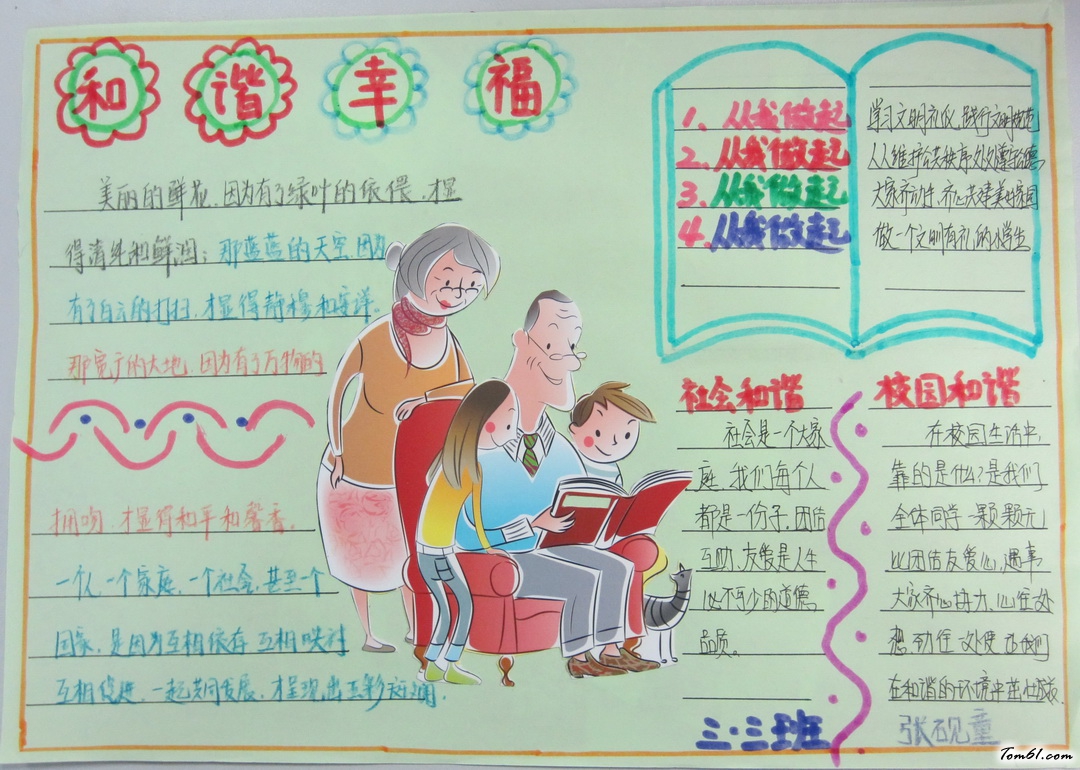 和谐幸福
美丽的鲜花，因为有了绿叶的依偎，才显
得清纯和鲜润；那蓝蓝的天空，因为
有了白云的打扫，才显得静穆和安详。
那宽广的大地，因为有了万物的
拥吻，才显得和平和馨香。
一个人，一个家庭，一个社会，甚至一个
国家，是因为互相依存 互相映衬
互相促进，一起共同发展，才呈现出五彩斑斓
1. 从我做起
2. 从我做起
3. 从我做起
4. 从我做起
学习文明礼仪，践行文明规范
人人维护公共秩序处处遵守公德
大家齐动手，齐心共建美好家园
做一个文明有礼的小学生
社会和谐
社会是一个大家
庭，我们每个人
都是一份子，团结
互助，友爱是人生
必不可少的道德
品质。
三·三班
校园和谐
在校园生活中，
靠的是什么？是我们
全体同学一颗颗元
比团结友爱心，遇事
大家齐心协力，心往一处
想，劲往一处使，
在和谐的环境中茁壮成长
张砚童
Tom61.com